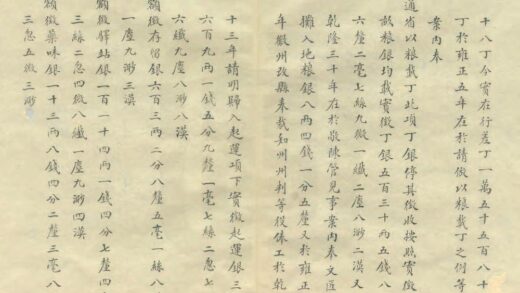 十八丁今實在行差丁一萬五千五百八十
丁於雍正五年在於請儌以糧載丁之例等
案內奉
通省以糧載丁此項丁銀停其徵收按照實徵
畝糧銀均載實徵丁銀五百三十兩五錢八
六釐二毫七絲九微一纖二塵八渺二漠又
乾隆三十年在於敬陳管見事案內奉文匠
攤入地糧銀八兩四錢一分五釐又於雍正
年徽州改縣奉裁知州州判等役俸工於乾
十三年請明歸入起運項下實徵起運銀三
六百九兩一錢五分九釐一毫七絲二忽七
六纖九塵八渺八漠
額徵存留銀六百三兩二分八釐五毫一絲八
一塵九渺三漠
額徵驛站銀一百一十四兩一錢四分七釐四
三絲二忽四微八纖一塵九渺四漠
額徵藥味銀一十三兩八錢四分二釐三毫八
三忽五微三渺